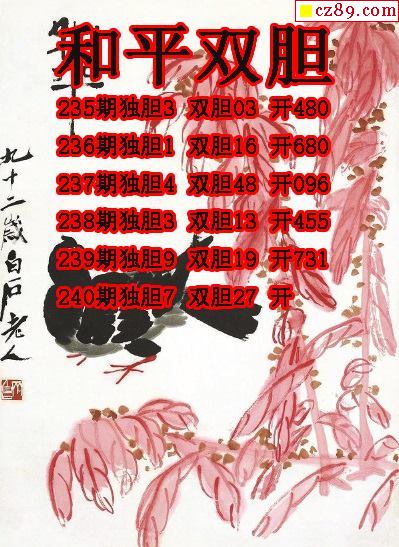 cz89.com
和平双胆
235期独胆3 双胆03 开480
236期独胆1 双胆16 开680
237期独胆4 双胆48 开096
238期独胆3 双胆13 开455
239期独胆9 双胆19 开731
240期独胆7 双胆27 开
九十二岁白石老人